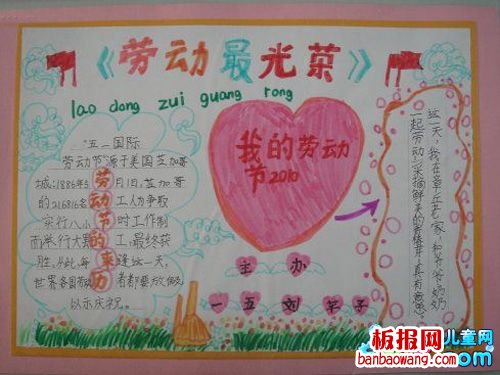 《劳动最光荣》
lao dong zui guang rong
"五一国际
劳动节"源于美国芝加哥
城.1886年5月1日,芝加哥
的216816名工人为争取
实行八小时工作制
而举行大罢工,最终获
胜.从此,每逢这一天,
世界各国劳动者都要
以示庆祝。
劳动节的来历
我的劳动
节2010
主办
一五 刘
这一天,我在章丘老家,和爷爷奶奶
一起劳动,采摘鲜
真有意思。
板报网
儿童网
banbaowang.com